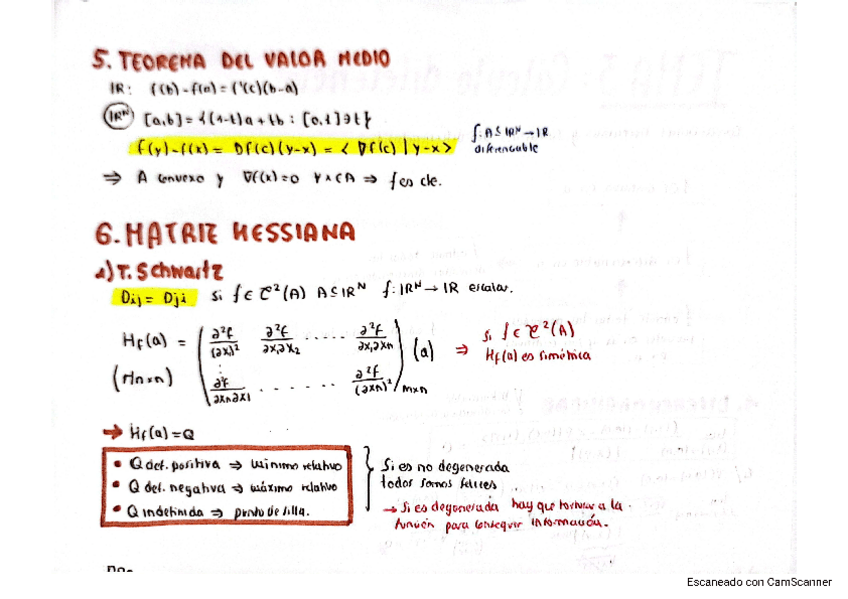 5. TEOREMA DEL VALOR MEDIO
IR: f(b)-f(a)=f'(c)(b-a)
IRᴺ [a,b]={(1-t)a+tb : [0,1]∋t}
f(y)-f(x) = Df(c)(y-x) = <∇f(c) | y-x> f: A⊆IRᴺ→IR
diferenciable
⇒ A convexo y ∇f(x)=0 ∀x∈A ⇒ f es cte.
6. MATRIZ HESSIANA
a) T. Schwartz
Dij = Dji si f ∈ C²(A) A⊆IRᴺ f: IRᴺ→IR escalar.
Hf(a) = ( ∂²f/(∂x₁)² ∂²f/∂x₁∂x₂ ..... ∂²f/∂x₁∂xn ) (a) ⇒ si f ∈ C²(A)
Hf(a) es simétrica
(Mnxn) ∂²f/∂xn∂x1 ...... ∂²f/(∂xn)² mxn
→ Hf(a)=Q
• Q def. positiva ⇒ mínimo relativo
• Q def. negativa ⇒ máximo relativo
• Q indefinida ⇒ punto de silla.
Si es no degenerada
todos somos felices
→ Si es degenerada hay que torturar a la
función para conseguir información.
Escaneado con CamScanner